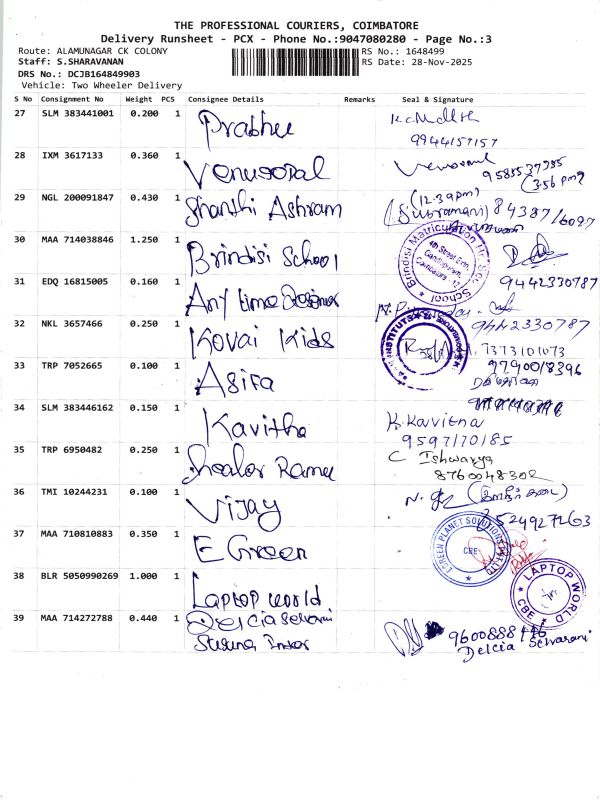 THE PROFESSIONAL COURIERS, COIMBATORE
Delivery Runsheet - PCX - Phone No.:9047080280 - Page No.:3
Route: ALAMUNAGAR CK COLONY RS No.: 1648499
Staff: S.SHARAVANAN RS Date: 28-Nov-2025
DRS No.: DCJB164849903
Vehicle: Two Wheeler Delivery
S No Consignment No Weight PCS Consignee Details Remarks Seal & Signature
27 SLM 383441001 0.200 1 Prabhu
9944157157
28 IXM 3617133 0.360 1 Venugopal
9585537955
(3.56 pm)
29 NGL 200091847 0.430 1 Shanthi Ashram
(12.39pm)
(Subramani) 84387 16097
30 MAA 714038846 1.250 1 Brindisi School
Brindisi Matriculation Hr. Sec. School
4th Street Extn.
Gandhipuram,
Coimbatore - 12
9442330787
31 EDQ 16815005 0.160 1 Any time
9442330787
32 NKL 3657466 0.250 1 Kovai Kids
7373101073
33 TRP 7052665 0.100 1 Asifa
9790018396
34 SLM 383446162 0.150 1 Kavitha
K. Kavitha
9597170185
35 TRP 6950482 0.250 1
C Ishwarya
8760048302
36 TMI 10244231 0.100 1 Vijay
37 MAA 710810883 0.350 1 E Green
GREEN PLANET SOLUTIONS PVT LTD
CBE
38 BLR 5050990269 1.000 1 Laptop World
LAPTOP WORLD
CBE
39 MAA 714272788 0.440 1 Delcia Selvarani
9600888446
Delcia Selvarani